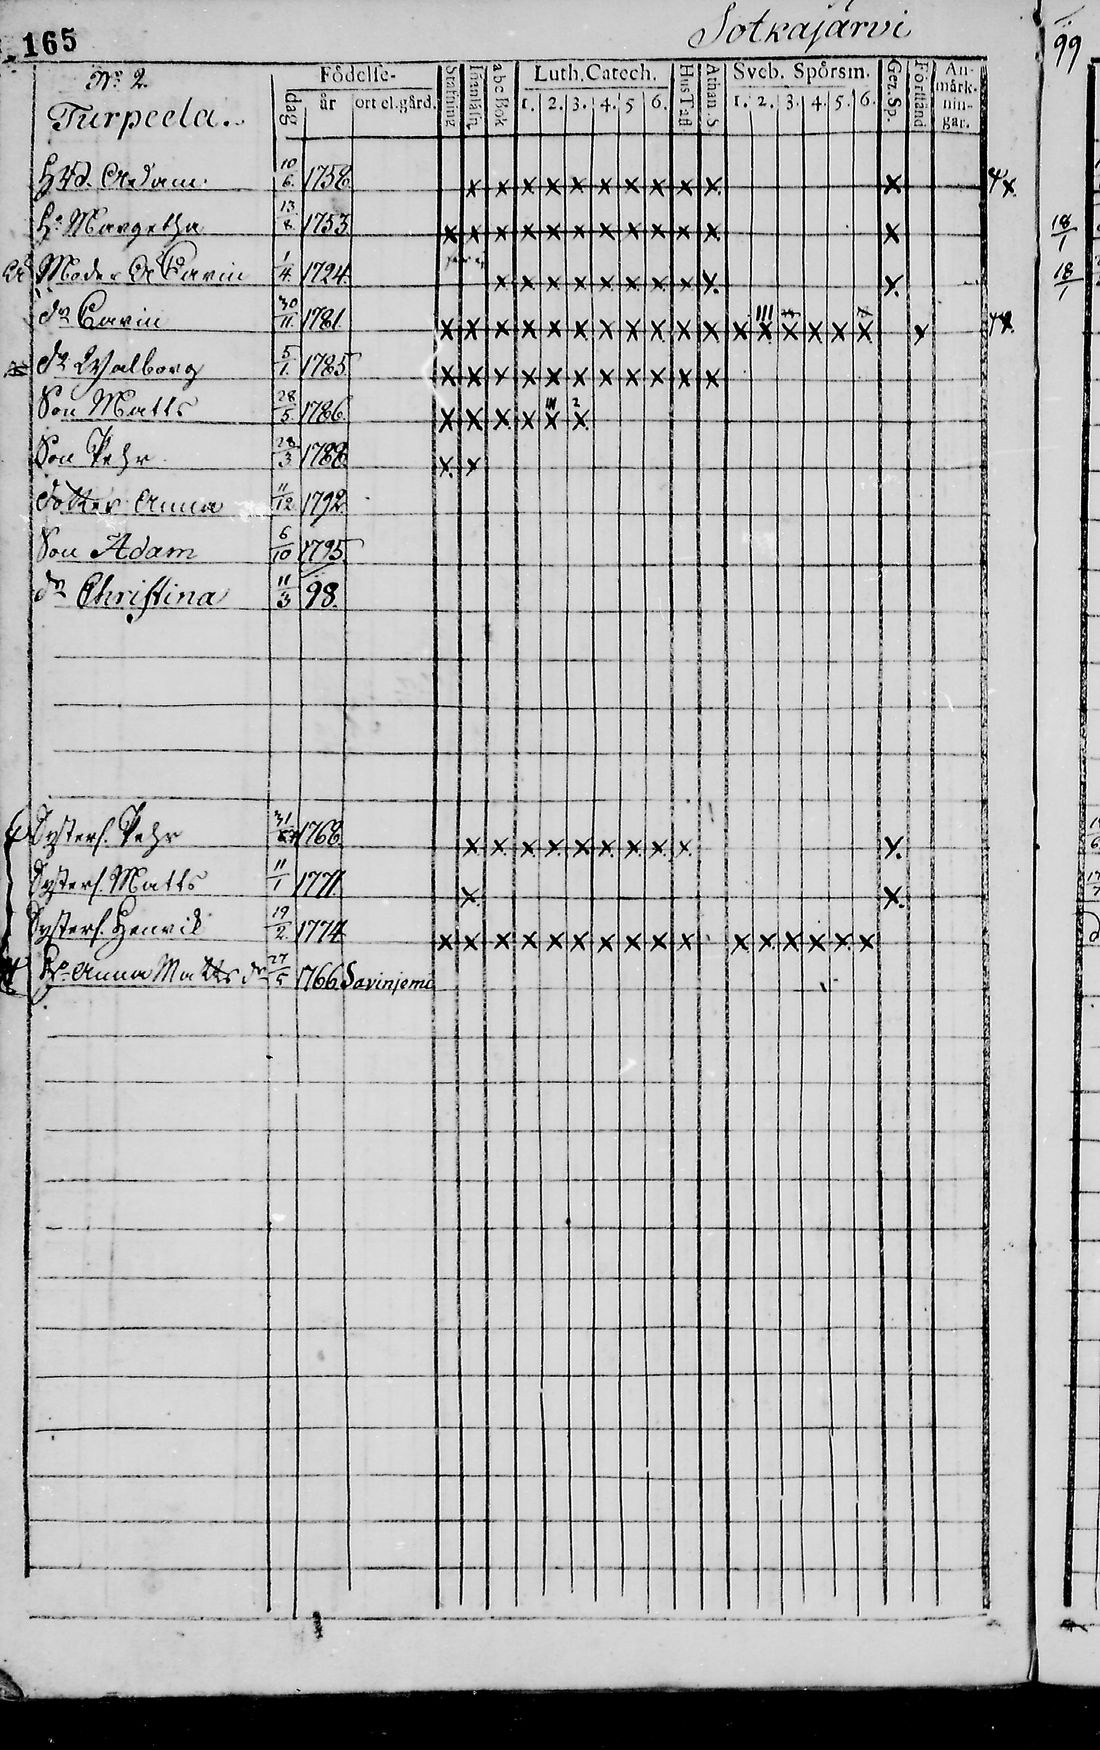 165 Sotkajärvi
99
No 2. Födelse- Stafning Luth. Catech. Hus Tafl Athan. S. Sveb. Spörsm. Gez. Sp. Förstånd An-märk-nin-gar.
Turpeela. dag år ort el. gård. abc Bok 1. 2. 3. 4. 5 6. 1. 2. 3. 4. 5. 6.
Adam 10/6 1758 x x x x x x x x x x x
Hu Margetha 13/8 1753 x x x x x x x x x x x x
Moder Carin 1/4 1724 x x x x x x x x x x
dr Carin 30/11 1781 x x x x x x x x x x x x x x x x x x
dr Walborg 5/1 1785 x x x x x x x x x x x
Son Matts 28/5 1786 x x x x x x
Son Pehr 28/3 1788 x x
dotter Anna 11/12 1792
Son Adam 6/10 1795
dr Christina 11/3 98.
Systers. Pehr 31 1768 x x x x x x x x x x
Systers. Matts 11/1 1771 x x
Systers. Henrik 19/2 1774 x x x x x x x x x x x x x x x x
Anna Matts dr 27/5 1766 Savinjemi